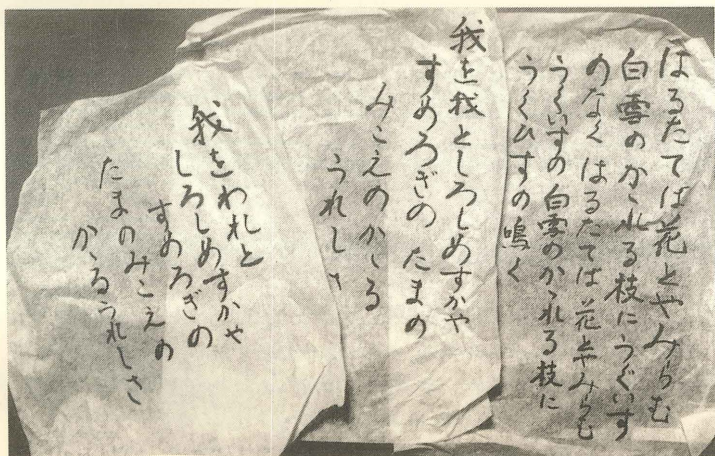 はるたてば花とやみらむ
白雪のかゝれる枝にうぐいす
のなく はるたては花とやみらむ
うくいすの白雪のかゝれる枝に
うくひすの鳴く
我を我としろしめすかや
すめろぎの たまの
みこえのかゝる
うれしさ
我をわれと
しろしめすかや
すめろぎの
たまのみこえの
かゝるうれしさ